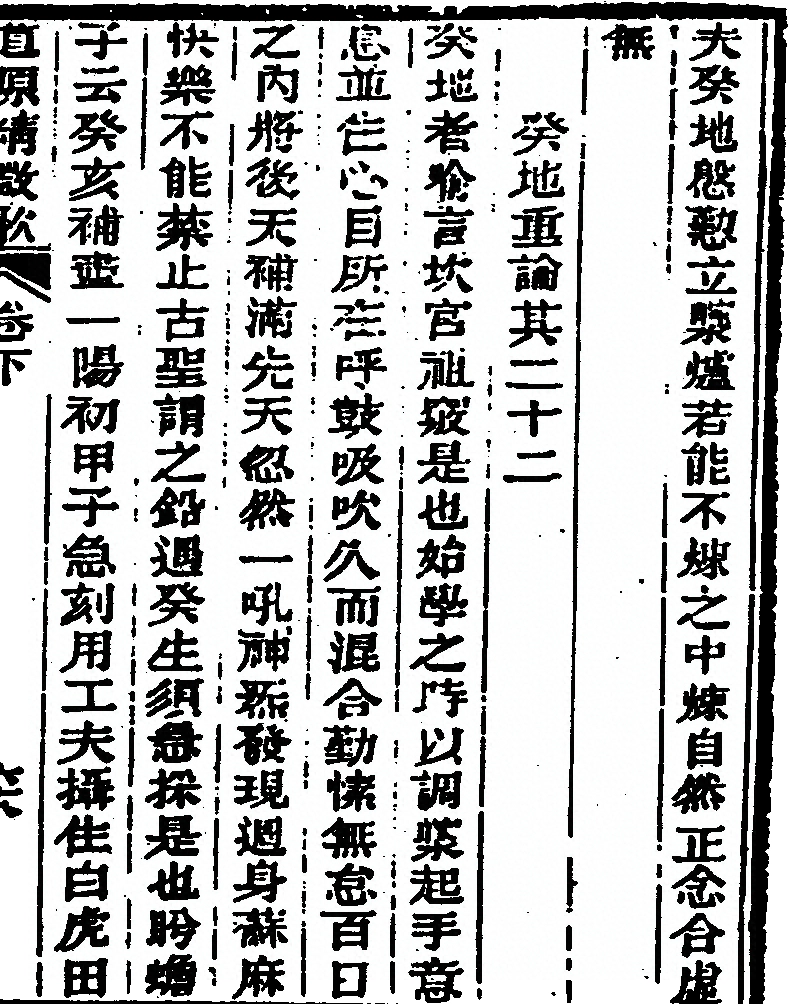 夫癸地慇懃立槳爐若能不煉之中煉自然正念合虛
無
癸地重論其二十二
癸地者喻言坎宮祖竅是也始學之時以調槳起手意
息並住心目所在呼鼓吸吹久而混合勤愫無怠百日
之內將後天補滿先天忽然一吼神炁發現週身蘇麻
快樂不能禁止古聖謂之鉛遇癸生須急採是也盻蟾
子云癸亥補盡一陽初甲子急刻用工夫攝住白虎田
道原精微歌 卷下 六